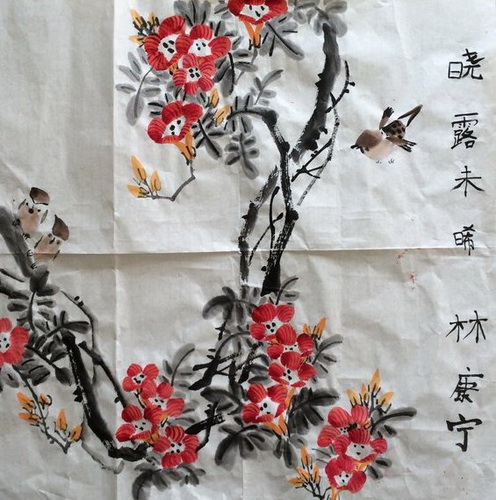 晓露未晞 林康宁